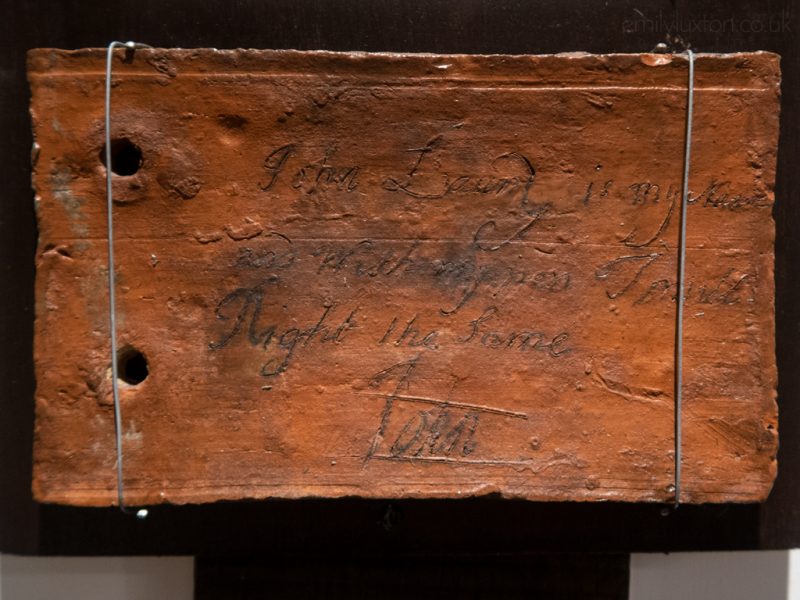 emilyluxton.co.uk
John Laund is my Name
and With my pen I
Right the Same
John